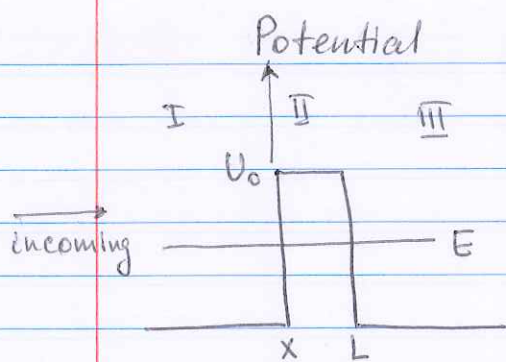 Potential
I II III
U₀
incoming E
X L